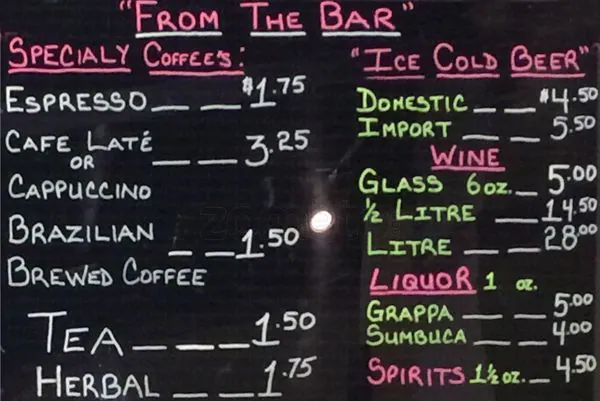 "FROM THE BAR"
SPECIALY COFFEE'S:
ESPRESSO _ _ $1.75
CAFE LATÉ _ _ _ 3.25
OR
CAPPUCCINO
BRAZILIAN _ _ 1.50
BREWED COFFEE
TEA _ _ _ 1.50
HERBAL _ _ 1.75
"ICE COLD BEER"
DOMESTIC _ _ $4.50
IMPORT _ _ 5.50
WINE
GLASS 6oz. _ 5.00
½ LITRE _ _ 14.50
LITRE _ _ 28.00
LIQUOR 1 oz.
GRAPPA _ _ 5.00
SUMBUCA _ _ 4.00
SPIRITS 1½ oz. _ 4.50